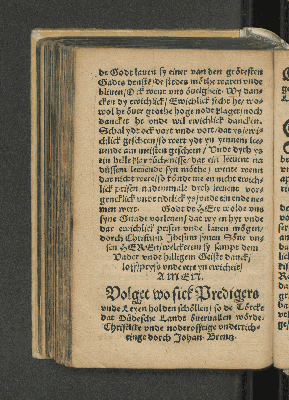 de Godt lauen sy einer van den grötesten
Gades denste de stedes möthe waren vnde
bliuen / Ock went vns öueigheit / Wy dan-
cken dy ewichlick / Ewichlick siche he / wo-
wol he öuer grothe hoge nodt klaget noch
dancket he vnde wil ewichlick dancken.
Schal ydt ock vort vnde vort / dat ys ewi-
chlick gescheen / so wert ydt yn yennem lee-
uende am meisten gescheen / Vnde dyth ys
ein helle klar tüchenisse / dat ein leeuent na
düssem leeuende syn möthe / wente wenn
dat nicht were / so könde me en nicht ewich-
lick prisen nademmale dyth leeuent vor-
gencklick vnde tidtlick ys / vnde ein ende ne-
men wert. Godt de HEre wolde vns
syne Gnade vorlenen / dat wy en hyr vnde
dar ewichlick prisen vnde lauen mögen /
dorch Christum Jhesum synen Söne vn-
sen HEREn / welckerem sy sampt dem
Vader vnde hilligem Geiste danck /
loff / pryss vnde eere yn ewicheit /
AMEN.
Volget wo sick Predigers
vnde Leyen holden schöllen / so de Törcke
dat Düdesche Landt öuerwallen wörde.
Christlike vnde noderofftige vnderrich-
tinge dorch Johan. Brentz.